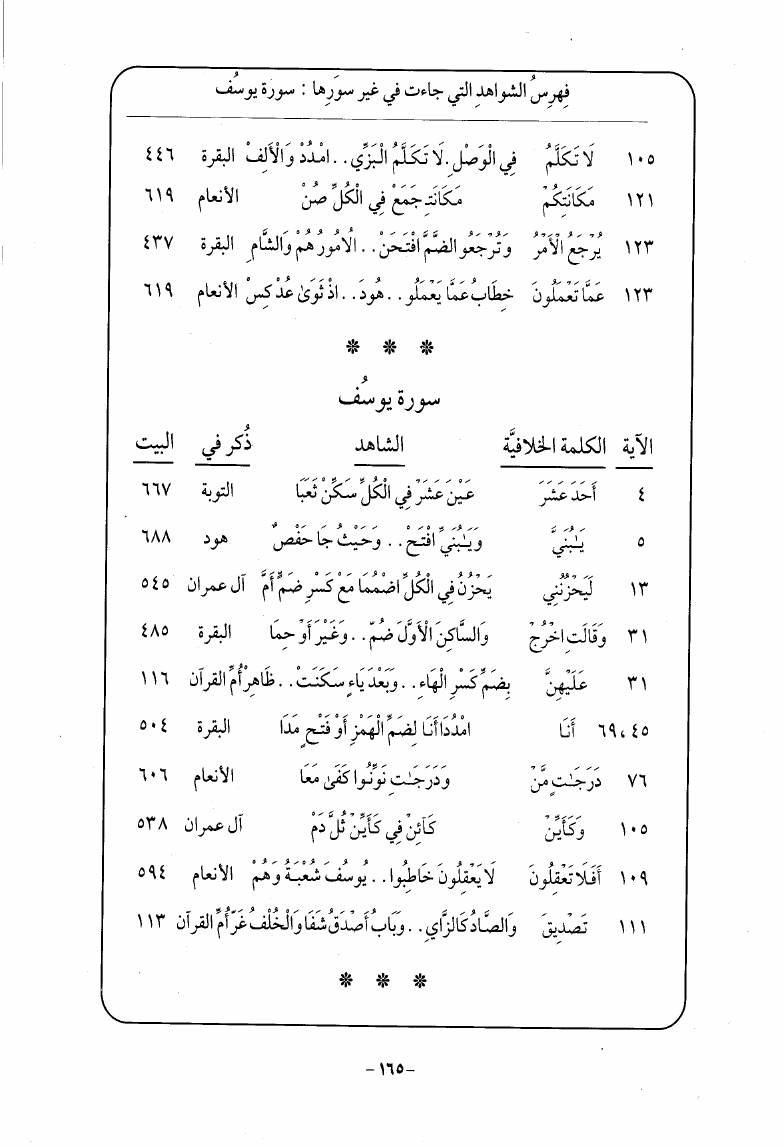 فهرسُ الشواهدِ التي جاءت في غير سوَرِها : سورة يوسُف
١٠٥ لَا تَكَلَّمُ فِي الْوَصْلِ. لَا تَكَلَّمُ الْبَزِّي . . امْدُدْ وَالْأَلِفْ البقرة ٤٤٦
١٢١ مَكَانَتِكُمْ مَكَانَتِ جَمَعْ فِي الْكُلِّ صُنْ الأنعام ٦١٩
١٢٣ يُرْجَعُ الْأَمْرُ وَتُرْجَعُو الضَّمَّ افْتَحَنْ . . الْأُمُورُ هُمْ وَالشَّامِ البقرة ٤٣٧
١٢٣ عَمَّا تَعْمَلُونَ خِطَابُ عَمَّا يَعْمَلُو . . هُودَ . . اذْ ثَوَىٰ عُدْ كِسْ الأنعام ٦١٩
* * *
سورة يوسُف
الآية الكلمة الخلافيَّة الشاهد ذُكر في البيت
٤ أَحَدَ عَشَرَ عَيْنَ عَشَرْ فِي الْكُلِّ سَكِّنْ ثَغَبَا التوبة ٦٦٧
٥ يَـٰبُنَيَّ وَيَـٰبُنَيِّ افْتَحْ . . وَحَيْثُ جَا حَفْصٌ هود ٦٨٨
١٣ لَيَحْزُنُنِي يَحْزُنُ فِي الْكُلِّ اضْمُمَا مَعْ كَسْرِ ضَمٍّ أَمَّ آل عمران ٥٤٥
٣١ وَقَالَتِ اخْرُجْ وَالسَّاكِنَ الْأَوَّلَ ضُمّْ . . وَغَيْرُ أَوْ حِمَا البقرة ٤٨٥
٣١ عَلَيْهِنَّ بِضَمِّ كَسْرِ الْهَاءِ . . وَبَعْدَ يَاءٍ سَكَنَتْ . . ظَاهِرْ أم القرآن ١١٦
٤٥، ٦٩ أَنَا امْدُدَا أَنَا لِضَمِّ الْهَمْزِ أَوْ فَتْحٍ مَدَا البقرة ٥٠٤
٧٦ دَرَجَـٰتٍ مَّن وَدَرَجَـٰتٍ نَوَّنُوا كَفَىٰ مَعَا الأنعام ٦٠٦
١٠٥ وَكَأَيِّن كَائِنْ فِي كَأَيِّنْ ثُلَّ دُمْ آل عمران ٥٣٨
١٠٩ أَفَلَا تَعْقِلُونَ لَا يَعْقِلُونَ خَاطِبُوا . . يُوسُفَ شُعْبَةٌ وَهُمْ الأنعام ٥٩٤
١١١ تَصْدِيقَ وَالصَّادُ كَالزَّايِ . . وَبَابُ أَصْدَقُ شَفَا وَالْخُلْفُ غَرْ أم القرآن ١١٣
* * *
-١٦٥-